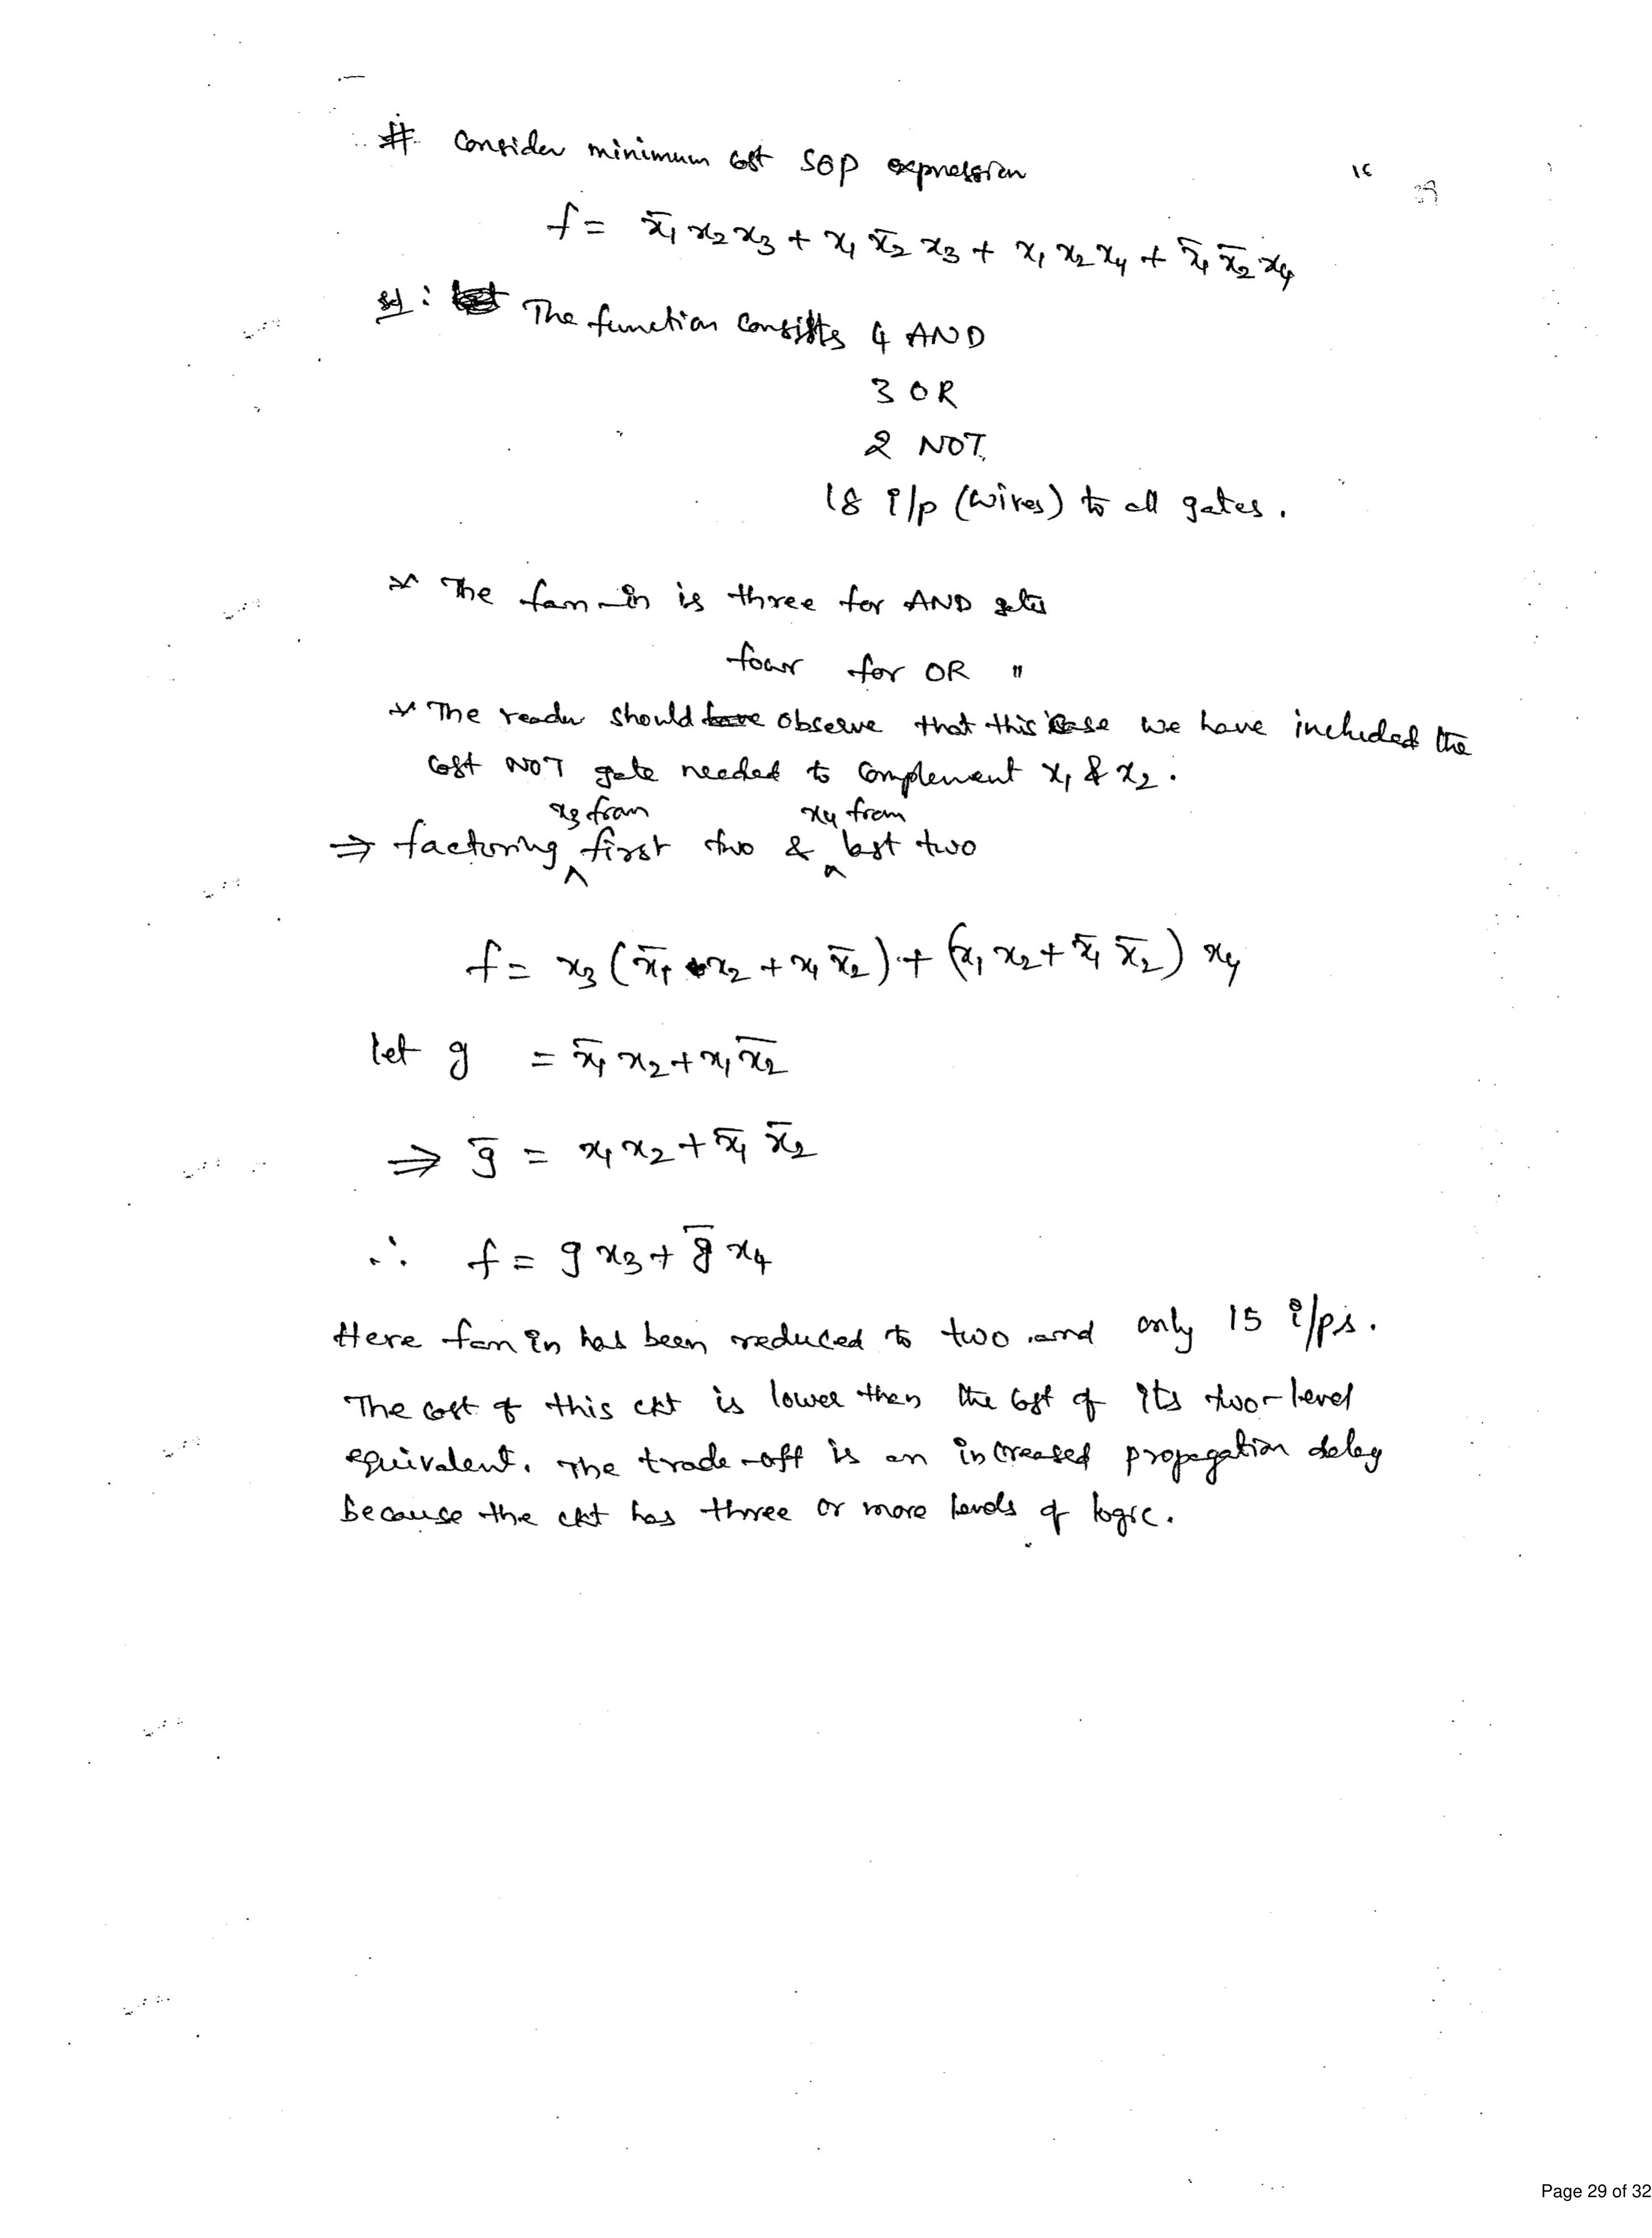 # Consider minimum cost SOP expression
16
29
f = x̄₁ x₂ x₃ + x₁ x̄₂ x₃ + x₁ x₂ x₄ + x̄₁ x̄₂ x₄
Sol : The function consists 4 AND
3 OR
2 NOT.
18 i/p (wires) to all gates.
* The fan-in is three for AND gates
four for OR "
* The reader should observe that this case we have included the
cost NOT gate needed to complement x₁ & x₂.
⇒ factoring x₃ from first two & x₄ from last two
f = x₃ (x̄₁ x₂ + x₁ x̄₂) + (x₁ x₂ + x̄₁ x̄₂) x₄
let g = x̄₁ x₂ + x₁ x̄₂
⇒ ḡ = x₁ x₂ + x̄₁ x̄₂
∴ f = g x₃ + ḡ x₄
Here fan in has been reduced to two and only 15 i/ps.
The cost of this ckt is lower then the cost of its two-level
equivalent. The trade-off is an increased propagation delay
because the ckt has three or more levels of logic.
Page 29 of 32